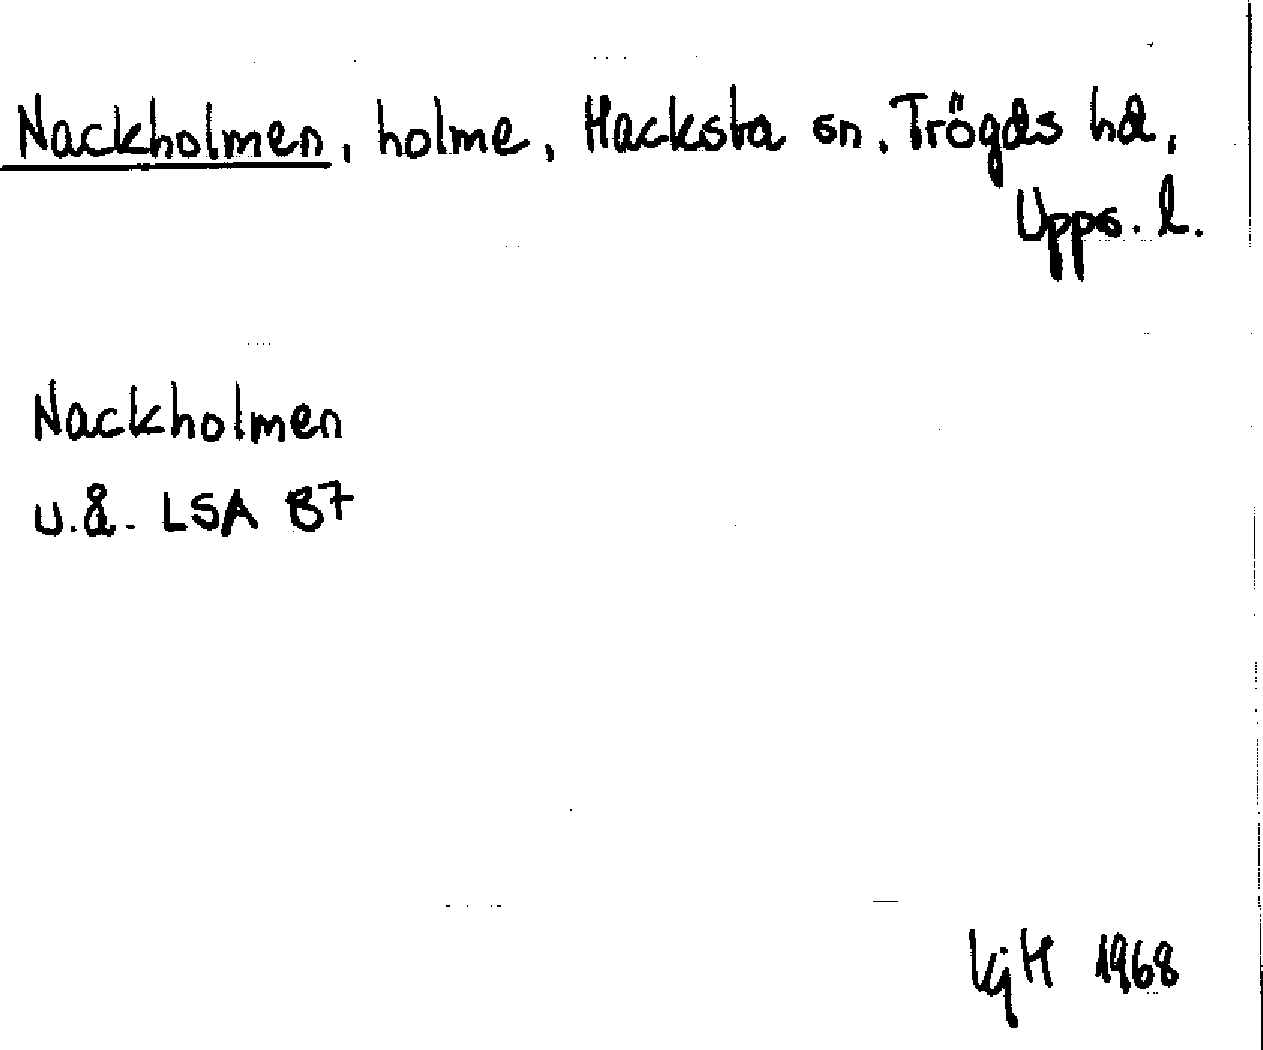 Nackholmen, holme, Hacksta sn. Trögds hd,
Upps. l.
Nackholmen
u.å. LSA B7
KjH 1968